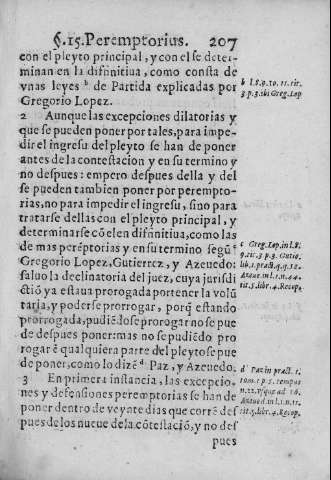 §.15. Peremptorius. 207
con el pleyto principal, y con el se deter-
minan en la difinitiua, como consta de
vnas leyes b de Partida explicadas por
Gregorio Lopez.
2 Aunque las excepciones dilatorias y
que se pueden poner por tales, para impe-
dir el ingresu del pleyto se han de poner
antes de la contestacion y en su termino y
no despues: empero despues della y del
se pueden tambien poner por perempto-
rias, no para impedir el ingresu, sino para
tratarse dellas con el pleyto principal, y
determinarse cō el en difinitiua, como las
de mas perēptorias y en su termino segū c
Gregorio Lopez, Gutierrez, y Azeuedo:
saluo la declinatoria del juez, cuya jurisdi-
ctiō ya estaua prorogada por tener la volū
taria, y poderse prorrogar, porq̄ estando
prorrogada, pudiēdose prorogar no se pue
de despues poner: mas no se pudiēdo pro
rogar ē qualquiera parte del pleyto se pue
de poner, como lo dizē d Paz, y Azeuedo.
3 En primera instancia, las excepcio-
nes y defensiones peremptorias se han de
poner dentro de veynte dias que corrē des
pues de los nueue de la cōtestaciō, y no des
pues
b l.8.9.10.11.tit.
3.p.3.ibi Greg.Lop
c Greg. Lop. in l.8.
9.tit.3 p.3. Gutie.
lib.1.pract.q.q.12.
Azeue.in l.1.n.44.
tit.5.lib.4.Recop.
d Paz in pract. 1.
tom.1 p.5. tempus
Azeued.in l.1.n.11.
tit.5.lib.4.Recop.